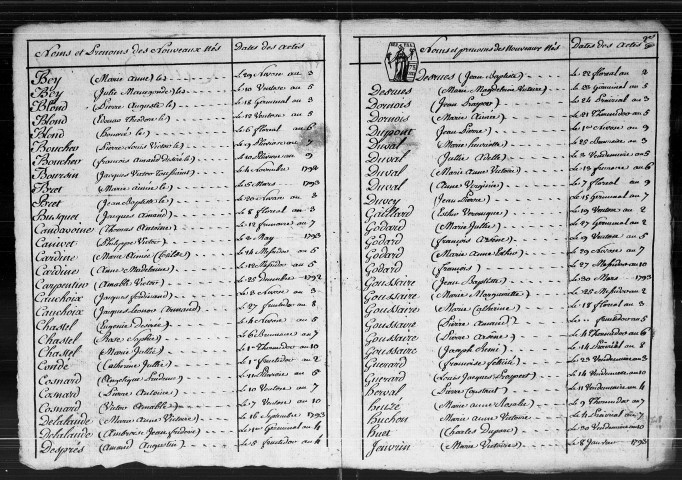 Noms et Prenoms des Nouveaux Nés Dates des Actes
Boy (Marie Anne) le 29 Nivose an 3
Boy (Julie le 10 Ventose an 5
Blond (Pierre Auguste) le le 18 Germinal an 3
Blond le 12 Ventose an 5
Blond (Honoré) le le 6 floreal an 6
Boucher (Pierre Louis Victor) an 7
Boucher (françois Amand Désiré) an 9
Boursin (Jacques Victor Toussaint) le 4 Novembre 1792
Bret (Marie Aimée) le 5 Mars 1793
Bret (Jean Baptiste) le 20 Nivose an 3
Busquet (Jacques Amand) le 8 floreal an 3
Caudavoine (Thomas Antoine) le 12 frimaire an 7
Cauvet (Philippe Victor) le 2 May 1793
Cardine (Marie Aimée le 14 Messidor an 5
Cardine (Anne Madelaine) le 12 Messidor an 5
Carpentier (Amable Victor) le 25 Decembre 1792
Cauchoix (Jacques ferdinand) le 2 Nivose an 3
Cauchoix (Jacques Armand) le 27 fructidor an 8
Chastel (Eugenie Desirée) le 4 Nivose an 5
Chastel (Rose Sophie) le 6 Brumaire an 7
Chastel (Marie Julie) le 1er Thermidor an 10
Condé (Catherine Julie) le 1er fructidor an 2
Cosnard (Angelique an 5
Cosnard (Pierre Antoine) le 10 Ventose an 7
Cosnard (Victor Amable) le 7 Ventose an 10
Delalande (Marie Anne Victoire) le 16 Septembre 1793
Delalande (Ambroise Jean frederic) le 1er Germinal an 4
Després (Amand Augustin) le 5 fructidor an 4
Noms et prenoms des Nouveaux Nés Dates des Actes
Desrues (Jean Baptiste) le 22 floreal an 2
Desrues (Marie Magdelaine Victoire) le 24 Germinal an 5
Dornois (Jean le 24 an 3
Dornois (Marie Aimée) le 21 Thermidor an 5
Dupont (Jean Pierre) le 1er Nivose an 9
Duval (Marie henriette) le 25 Brumaire an 3
Duval (Julie Adelle) le 3 Vendemiaire an 5
Duval (Marie Anne Victoire) le 13 frimaire an 6
Duval (Anne Virginie) le 7 floreal an 9
Duvey (Jean Pierre) le 15 Germinal an 7
Gaillard (Esther Veronique) le 19 Ventose an 2
Godard (Marie Julie) le 27 Germinal an 2
Godard (françois Arsène) le 19 Ventose an 5
Godard (Marie Anne Esther) le 29 Nivose an 7
Godard (françois) le 27 Messidor an 10
Goussaire (Jean Baptiste) le 30 Mars 1793
Goussaire (Marie Marguerite) le 25 Messidor an 2
Goussaire (Marie Catherine) le 18 floreal an 3
Goussaire (Pierre Amand) fructidor an 5
Goussaire (Pierre Arsene) le 4 Thermidor an 6
Goussaire (Joseph Remi) le an 8
Guerard (Françoise felicité) le 23 Vendemiaire an 3
Guerard (Louis Jacques le 14 Vendemiaire an 10
Herval (Pierre Constant) le 11 Vendemiaire an 4
heuzé (Marie Anne Rosalie) le 9 Thermidor an 7
huchon (Marie Anne Victoire) le 4 an 7
huet (Charles le 30 Vendemiaire an 10
Jouvrin (Marie Victoire) le 8 Janvier 1793